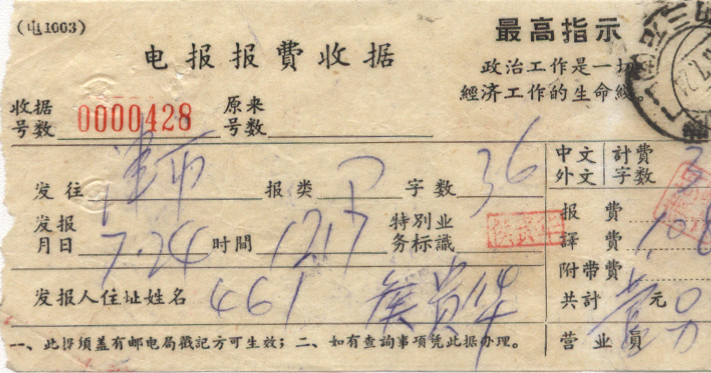 (电1003)
最高指示
电报报费收据
政治工作是一切
經济工作的生命线。
收据号数 0000428 原来号数
中文 計費
外文 字数 3
发往 津市 报类 字数 36
报費 1.08
发报月日 7.24 时間 1217 特別业务标識
譯費
附带費
发报人住址姓名 461 侯贵华
共計 元
一、此据须盖有邮电局戳記方可生效；二、如有查詢事項凭此据办理。
营业員